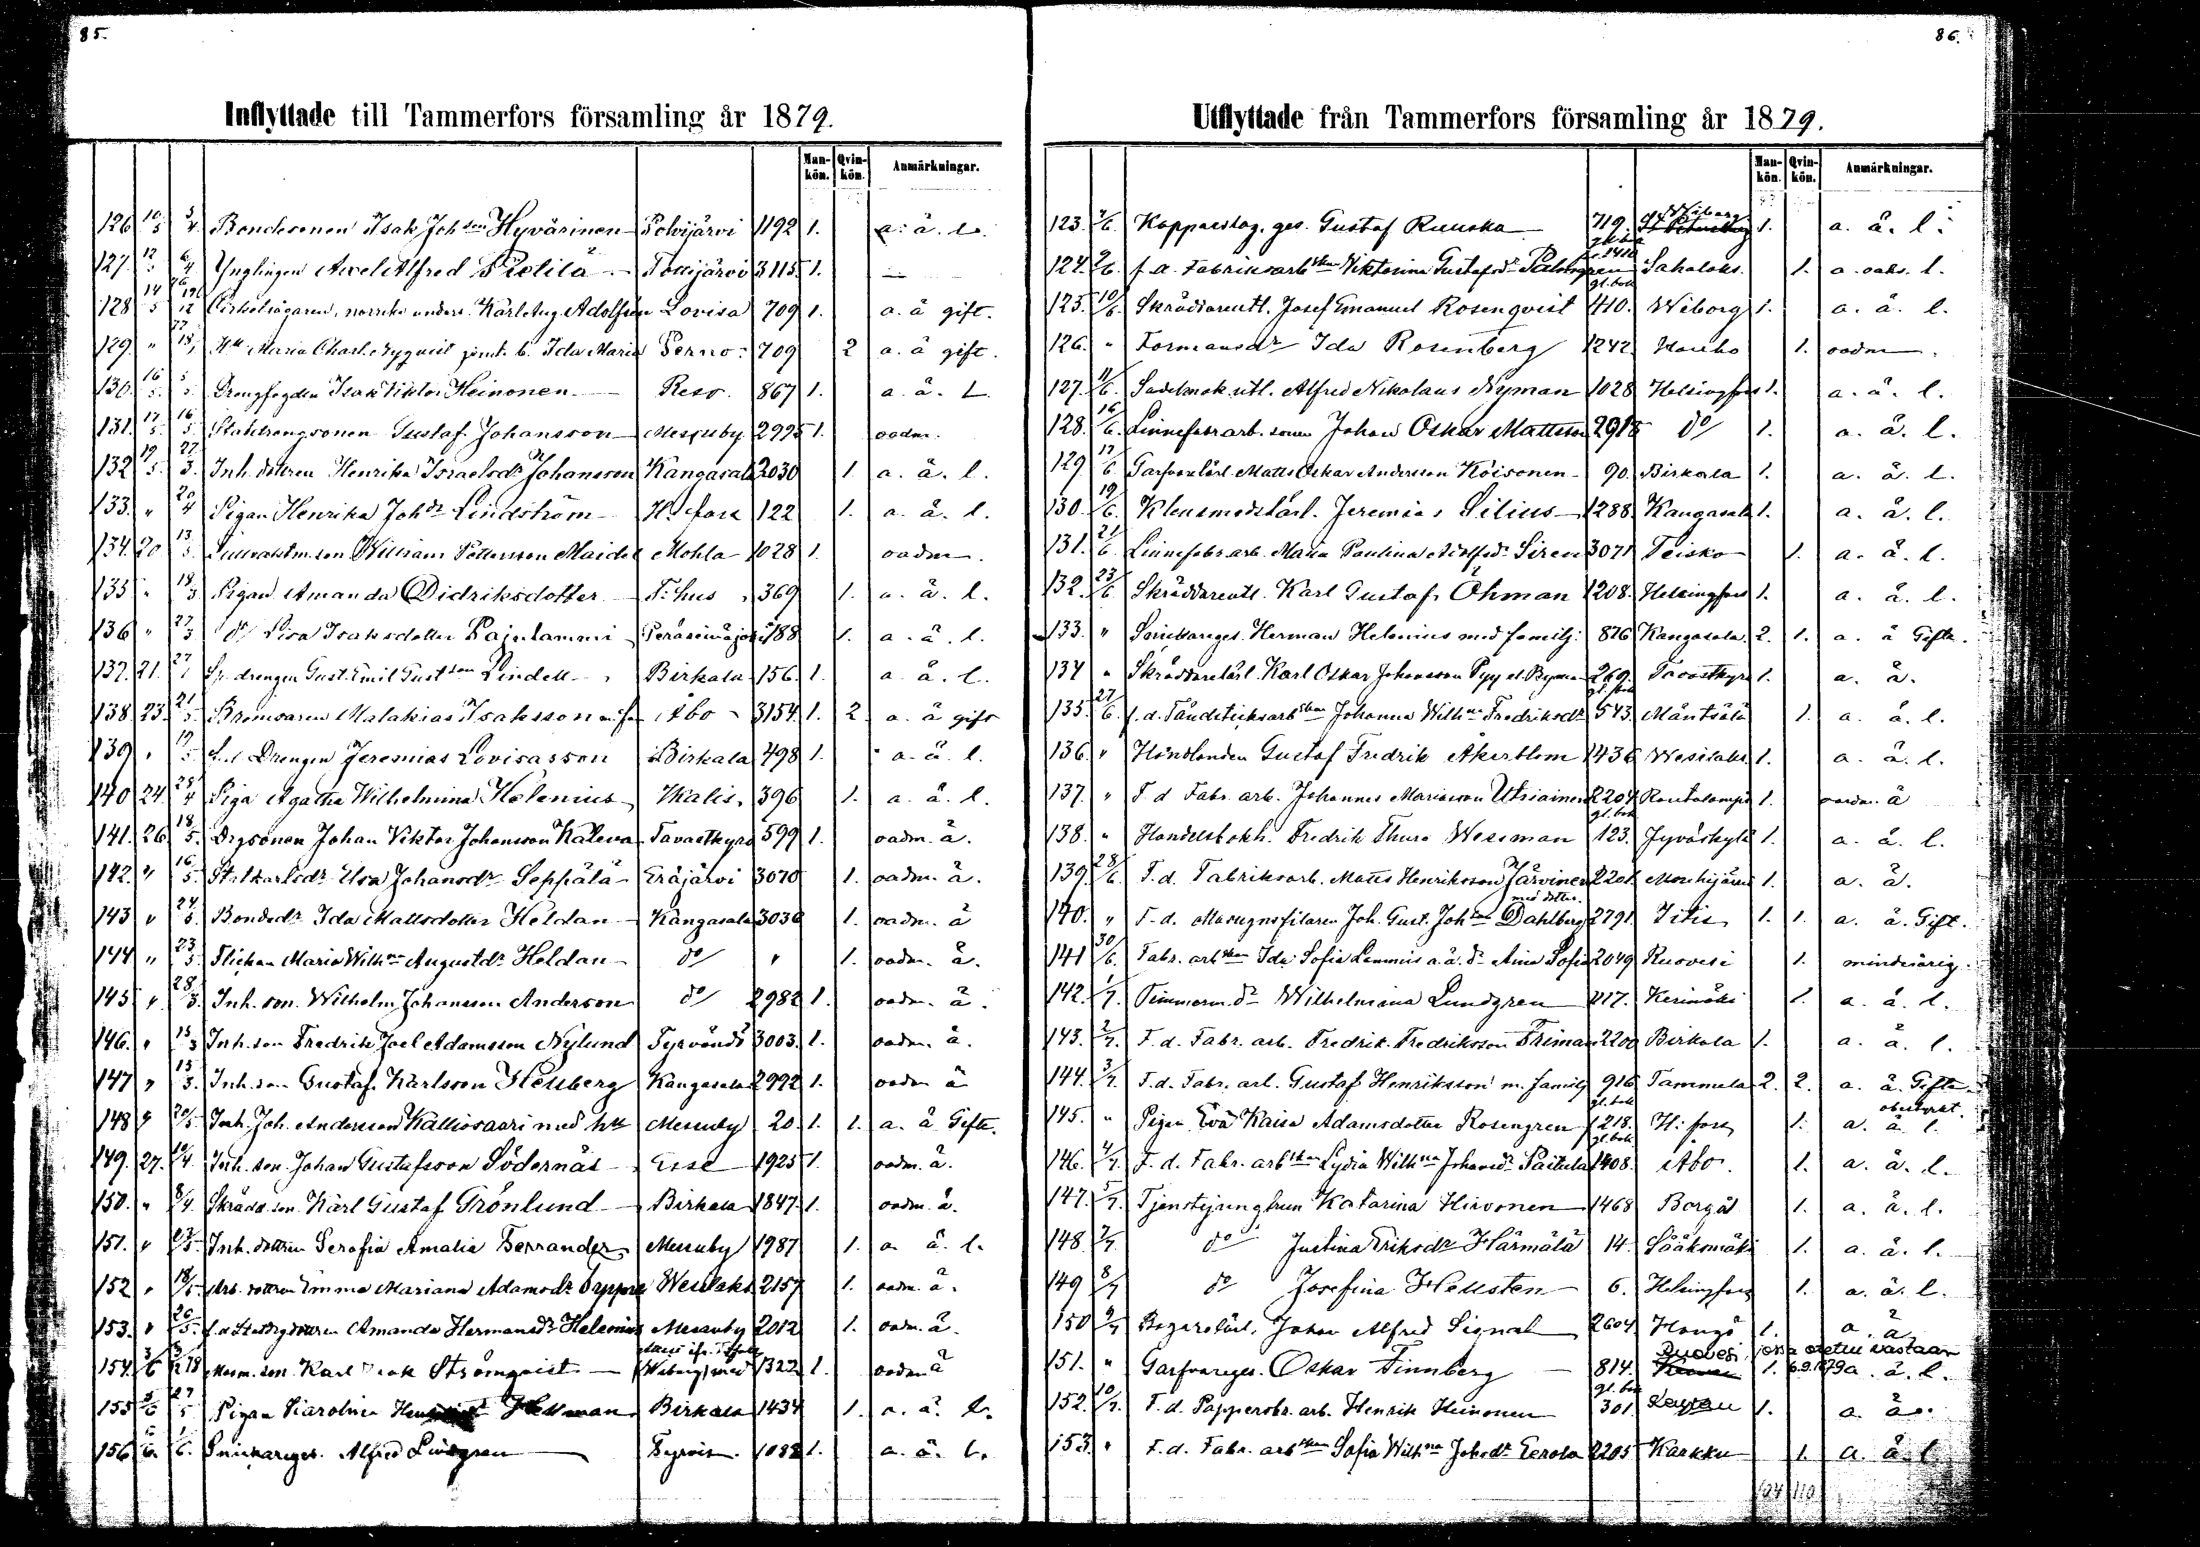 85.
Inflyttade till Tammerfors församling år 1879.
Mankön. Qvinkön. Anmärkningar.
126 10/5 5/4 Bondesonen Isak Johsson Hyvärinen Polvijärvi 1192 1. a. ä. l.
127. 12 6/4 Ynglingen Axel Alfred 3115 1.
128 14/5 709 1. a. ä gift.
129 " Maria Charl. Nyqvist jemte b. Ida Maria Perno 709 2 a. ä gift.
130. 16/5 Drengfogden Isak Viktor Heinonen Reso 867 1. a. ä. l.
131. 17/5 16/5 Gustaf Johansson Messuby 2995 1. oadm.
132 19/5 27/3 Inh. dottren Henrika Israelsdr Johansson Kangasala 3030 1 a. ä. l.
133. " 20/4 Pigan Henrika Johdr Lindström H.fors 122 1. a. ä. l.
134. 20 13/5 William Pettersson Maidel Mohla 1028 1. oadm.
135 " 18/3 Pigan Amanda Didriksdotter T.hus 369 1. a. ä. l.
136 " 27/3 do Lisa Isaksdotter Pajulammi 188 1. a. ä. l.
137. 21. 27 drengen Gust. Emil Gustson Lindell Birkala 156. 1. a. ä. l.
138 23. 21/5 Malakias Isaksson Åbo 3154. 1. 2 a. ä gift
139 " 19/5 Drengen Jeremias Lovisasson Birkala 498 1. a. ä. l.
140 24. 25/4 Piga Agatha Wilhelmina Helenius Ikalis 396 1. a. ä. l.
141. 26. 18/5. Drgsonen Johan Viktor Johansson Kaleva Tavastkyro 599 1. oadm. ä.
142. " 16/5 Johansdr Seppälä Eräjärvi 3070 1. oadm. ä.
143 " 24/5 Bondedr Ida Mattsdotter Heldan Kangasala 3036 1. oadm. ä
144 " 23/5 Flickan Maria Wilhna Augustdr Heldan do " 1. oadm. ä.
145 " 28/3. Inh. son. Wilhelm Johansson Anderson do 2982 1. oadm. ä.
146. " 15/3 Inh. son Fredrik Joel Adamsson Nylund Tyrvändö 3003. 1. oadm. ä.
147 " 15/3. Inh. son Gustaf Karlsson Hellberg Kangasala 2992 1. oadm ä
148 " 20/5. Inh. Joh. Andersson Kalliosaari med hu Messuby 20 1. 1. a. ä Gifte.
149. 27. 10/4 Inh. son Johan Gustafsson Södernäs Esse 1925 1. oadm. ä.
150. " 8/4. Skrädd. son Karl Gustaf Grönlund Birkala 1847. 1. oadm. ä.
151. " 23/5. Inh. dottren Serafia Amalia Messuby 1987 1. a ä. l.
152 " 18/5. Arb. dottren Emma Mariana Adamsdr Weselaks 2157 1. oadm. ä.
153. " 26/5. Amanda Hermansdr Helenius Messuby 2012 1. oadm. ä.
154. 3/6 3/12 78 son Karl Isak Strömqvist (Wiborg) 1322 1. oadm ä
155 5/6 27/5 Pigan Karolina Hellman Birkala 1434 1. a. ä. l.
156 6/6 1/6. Snickareges. Alfred Lindgren 1088 1. a. ä. l.
86.
Utflyttade från Tammerfors församling år 1879.
Mankön. Qvinkön. Anmärkningar.
Wiborg
123. 7/6. Kopparslag. ges. Gustaf Ruuska 719. St Petersburg 1. a. ä. l.
124. 9/6. f. d. Fabriksarbskan Viktorina Gustafsdr Palmgren 1410 Sahalaks. 1. a. oaks. l.
gl. bok
125. 10/6. Skräddareutl. Josef Emanuel Rosenqvist 410. Wiborg 1. a. ä. l.
126. " Formansdr Ida Rosenberg 1242. Hauho 1. oadm.
127. 11/6. Sadelmak. utl. Alfred Nikolaus Nyman 1028 Helsingfors 1. a. ä. l.
128. 16/6. Linnefabr. arb. sonen Johan Oskar Mattsson 2918 do 1. a. ä. l.
129 17/6 Garfvarelärl. Matts Oskar Andersson Köisonen 90. Birkala 1. a. ä. l.
130. 19/6. Klensmedslärl. Jeremias Silius 1288. Kangasala 1. a. ä. l.
131. 21/6. Linnefabr. arb. Maria Paulina Adolfsdr Siren 3071 Teisko 1. a. ä. l.
132. 23/6. Skräddareutl. Karl Gustaf Öhman 1208. Helsingfors 1. a. ä. l.
133. " Snickareges. Herman Helenius med familj. 876 Kangasala. 2. 1. a. ä Gifte.
134 " Skräddarelärl. Karl Oskar Johansson Pyy el. Ryman 269. Tavastkyro 1. a. ä.
gl. bok
135. 27/6. f. d. Tändsticksarbskan Johanna Wilhna Fredriksdr 543. Mäntsälä 1. a. ä. l.
136. " Handlanden Gustaf Fredrik Åkerblom 1436 Wesilaks 1. a. ä. l.
137. " F d Fabr. arb. Johannes Mariasson Utriainen 2204. Rautalampi 1. oadm. ä
gl. bok
138. " Handelsbokh. Fredrik Thure Wessman 123. Jyväskylä 1. a. ä. l.
139. 28/6. F. d. Fabriksarb. Matts Henriksson Järvinen 2201. Mouhijärvi 1. a. ä.
med dotter.
140. " F. d. Masugnsfilaren Joh. Gust. Johson Dahlberg 2791. Itis 1. 1. a. ä. Gift.
141 30/6. Fabr. arbskan Ida Sofia Lemmis a. ä. dr Aina Sofia 2049 Ruovesi 1. minderårig.
142. 1/7. Timmerm. dr Wilhelmina Lundgren 217. Kerimäki 1. a. ä. l.
143. 2/7. F. d. Fabr. arb. Fredrik Fredriksson Friman 2200 Birkala 1. a. ä. l.
144. 3/7. F. d. Fabr. arb. Gustaf Henriksson m. familj 916 Tammela 2. 2. a. ä. Gifte
gl. bok obestyrkt.
145. " Pigan Eva Kaisa Adamsdotter Rosengren 1218. H:fors 1. a. ä l.
gl. bok
146. 4/7. F. d. Fabr. arbskan Lydia Wilhna Johansdr 1408. Åbo. 1. a. ä. l.
147. 5/7. Tjenstejungfrun Katarina Hirvonen 1468 Borgå 1. a. ä. l.
148 7/7 do Justina Eriksdr Härmälä 14. Sääksmäki 1. a. ä. l.
149 8/7 do Josefina Hellsten 6. Helsingfors 1. a. ä. l.
150 9/7 Bagarelärl. Johan Alfred Signal 2604 Hangö 1. a. ä.
Ruovesi, jossa otettu vastaan
151. " Garfvareges. Oskar Finnberg 814. 1. 6.9.1879 a. ä. l.
gl. bok
152. 10/7. F. d. Pappersbr. arb. Henrik Heinonen 301. 1. a. ä.
153. " F. d. Fabr. arbskan Sofia Wilhna Johsdr Eerola 2205 Karkku 1. a. ä. l
104 110